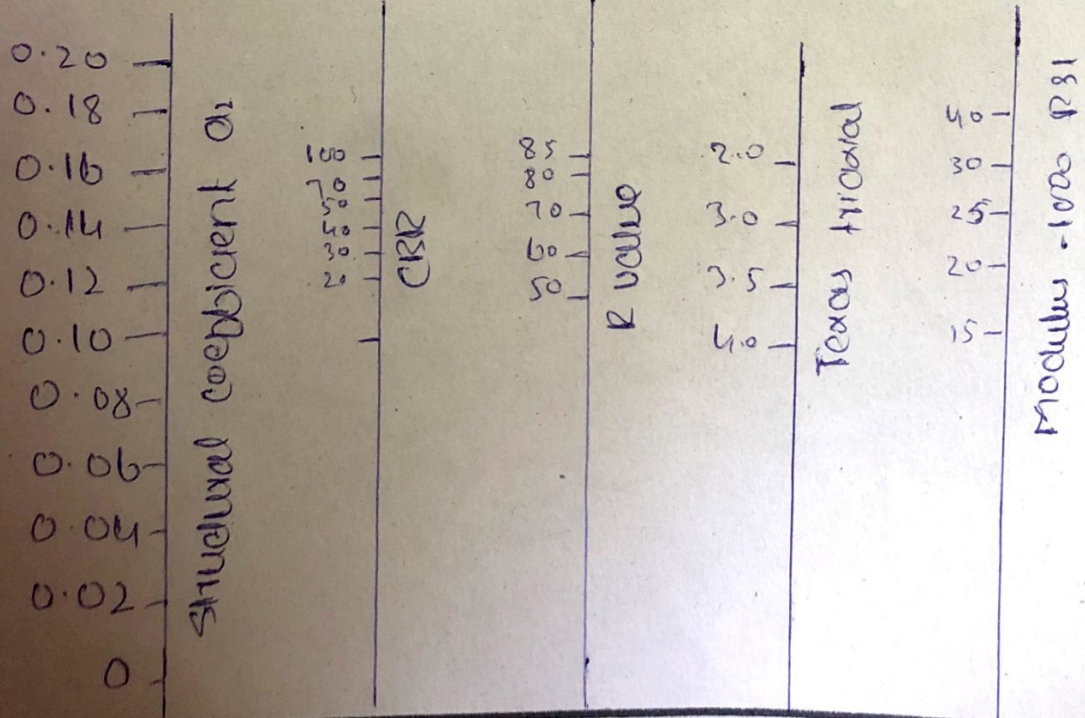 0.20
0.18
0.16
0.14
0.12
0.10
0.08
0.06
0.04
0.02
0
Structural coefficient a₂
100
70
50
40
30
20
CBR
85
80
70
60
50
R value
2.0
3.0
3.5
4.0
Texas triaxial
40
30
25
20
15
Modulus -1000 PSI